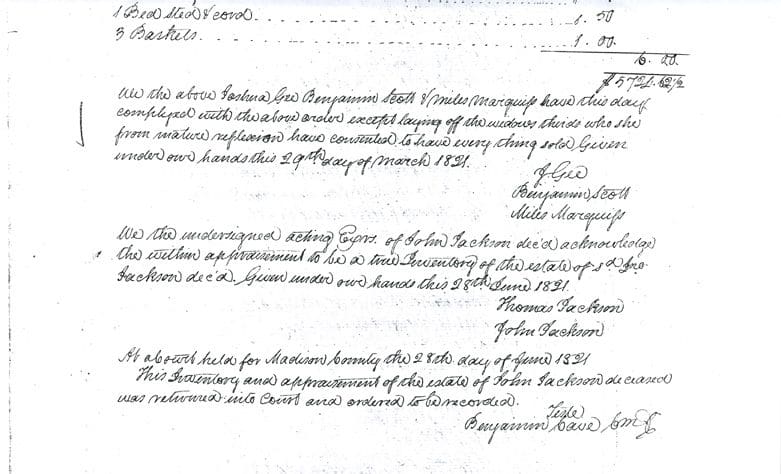 1 Bed Sted & cord . . . . . . . . . . 1. 50
3 Baskets. . . . . . . . . . 1. 00.
6. 00.
$5721.62½
We the above Joshua Gee Benjamin Scott & Miles Marquiss have this day
complyed with the above order except laying off the widows thirds who she
from mature reflexion have consented to have every thing sold Given
under our hands this 29th day of March 1821.
J Gee
Benjamin Scott
Miles Marquiss
We the undersigned acting Exrs. of John Jackson dec'd acknowledge
the within appraisement to be a true Inventory of the estate of sd Jno
Jackson dec'd. Given under our hands this 28th June 1821.
Thomas Jackson
John Jackson
At a Court held for Madison County the 28th day of June 1821
This Inventory and appraisement of the estate of John Jackson deceased
was returned into Court and ordered to be recorded.
Teste
Benjamin Cave